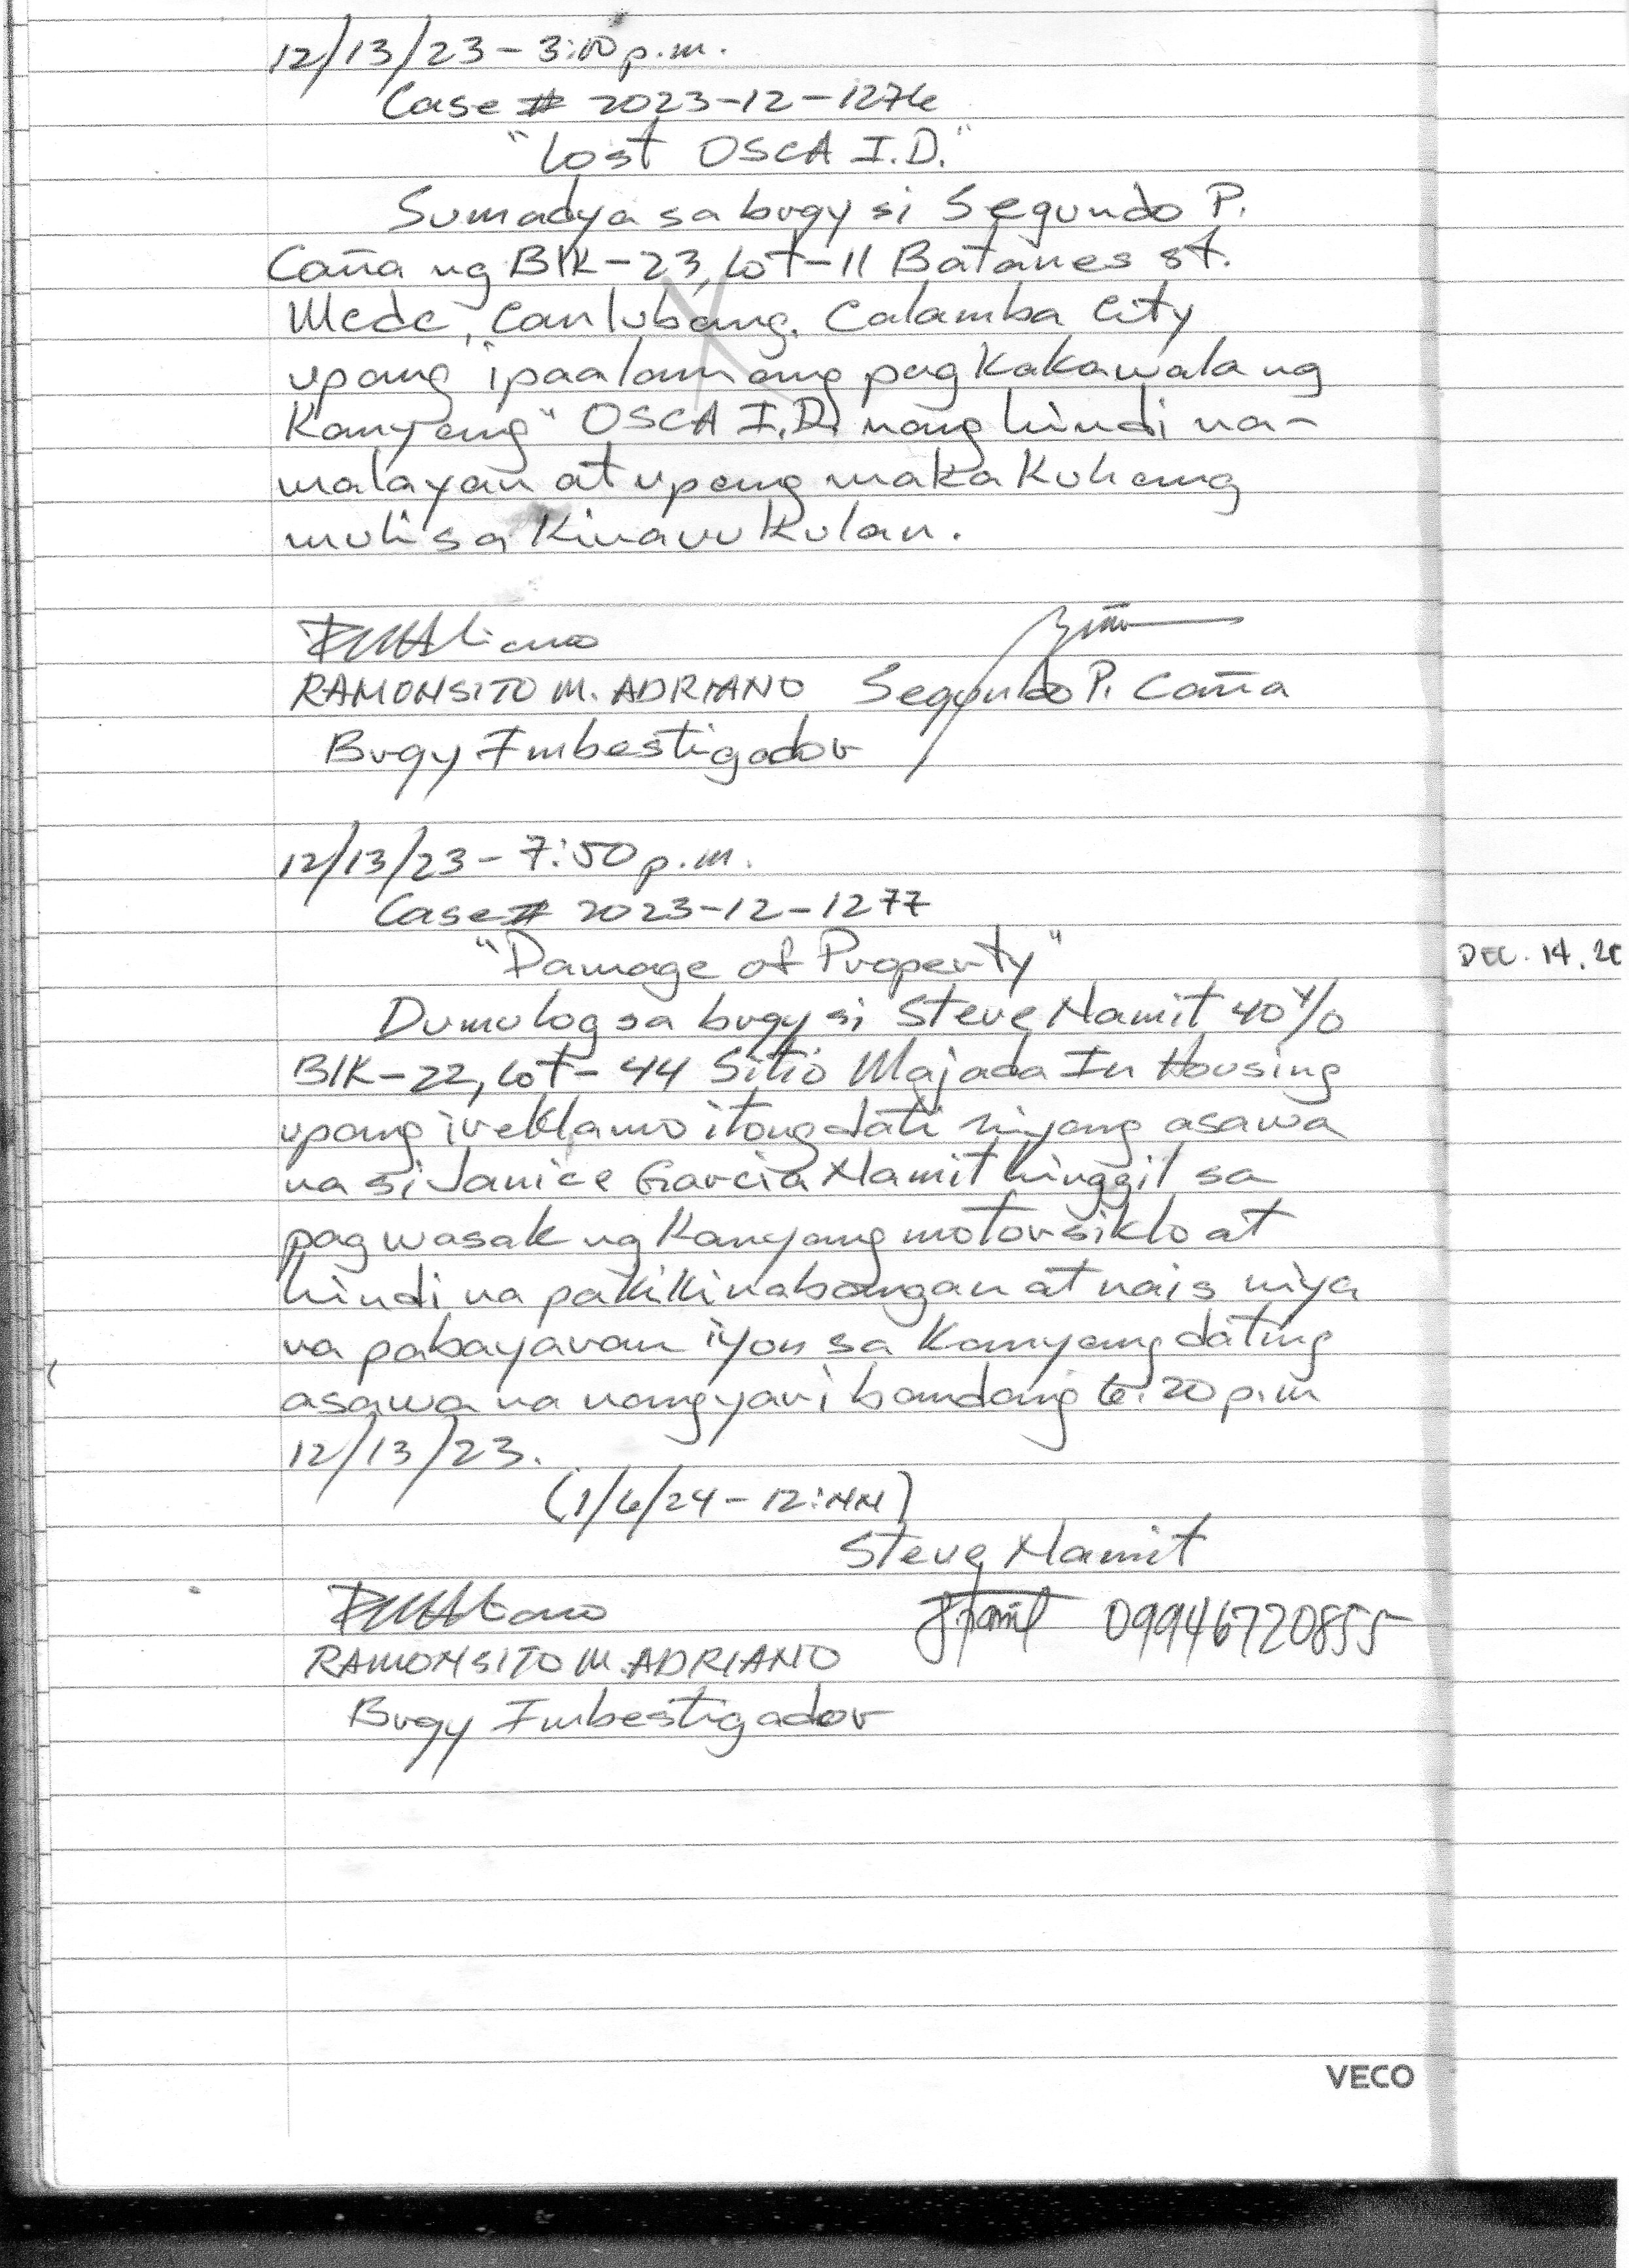 12/13/23 - 3:10 p.m.
Case # 2023-12-1276
"Lost OSCA I.D."
Sumadya sa brgy si Segundo P.
Caña ng Blk-23, Lot-11 Batanes st.
Mcdc, Canlubang. Calamba City
upang ipaalam ang pagkakawala ng
Kanyang "OSCA I.D. nang hindi na-
malayan at upang maka kuhang
muli sa kinauukulan.
RAMONSITO M. ADRIANO Segundo P. Caña
Brgy Imbestigador
12/13/23 - 7:50 p.m.
Case # 2023-12-1277
"Damage of Property"
DEC. 14, 20
Dumulog sa brgy si Steve Mamit 40 y/o
Blk-22, Lot-44 Sitio Majada In Housing
upang ireklamo itong dati niyang asawa
na si Janice Garcia Mamit hinggil sa
pagwasak ng kanyang motorsiklo at
hindi na pakikinabangan at nais niya
na pabayaran iyon sa kanyang dating
asawa na nangyari bandang 6:20 p.m
12/13/23.
(1/6/24 - 12:NN)
Steve Mamit
09946720855
RAMONSITO M. ADRIANO
Brgy Imbestigador
VECO